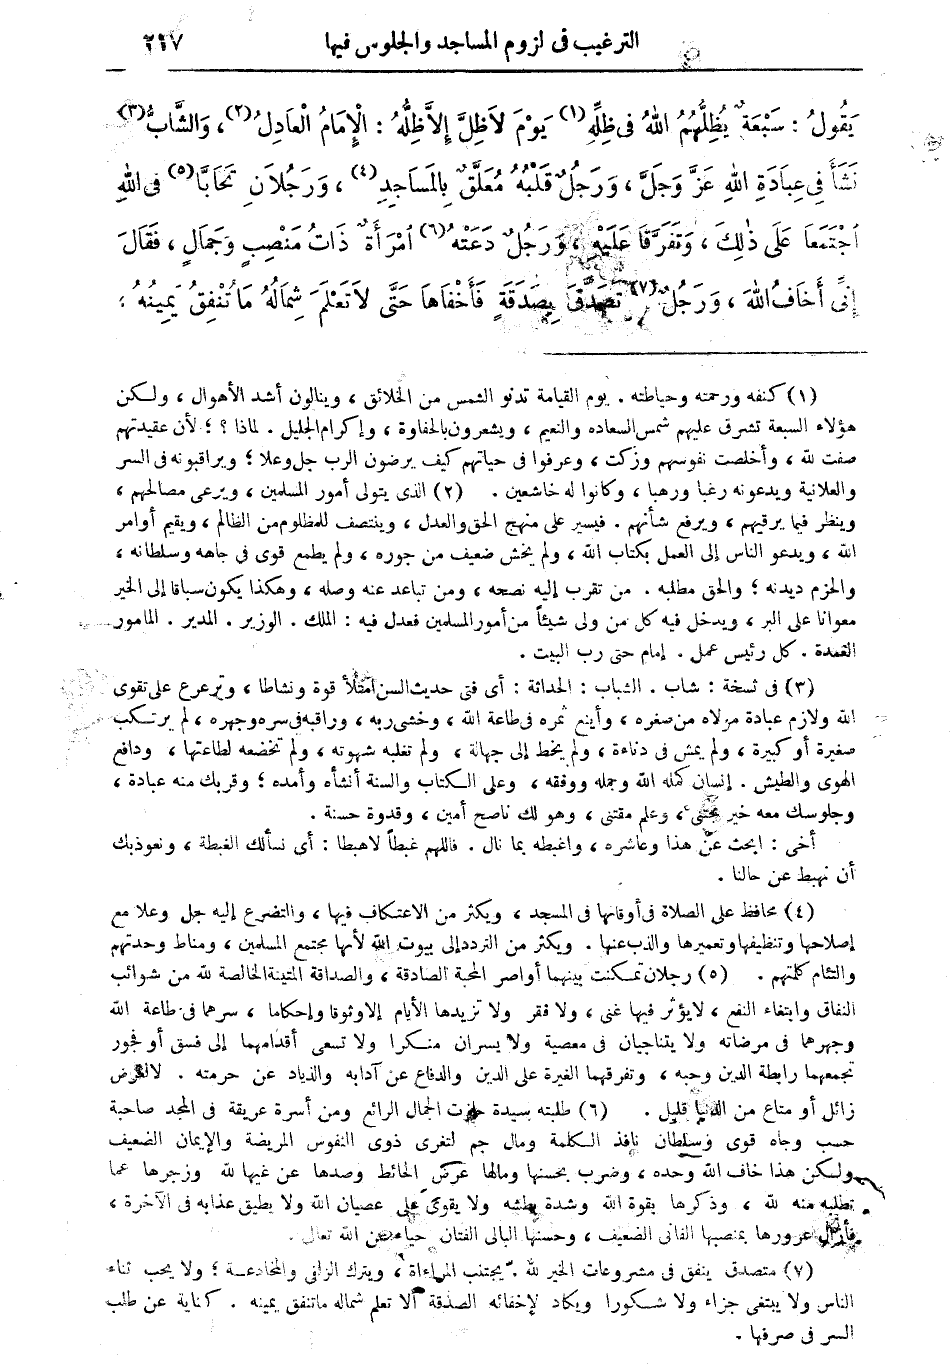 الترغيب فى لزوم المساجد والجلوس فيها ٢١٧
يَقُولُ : سَبْعَةٌ يُظِلُّهُمُ اللهُ فى ظِلِّهِ (١) يَوْمَ لَاظِلَّ إِلاَّ ظِلُّهُ : الْإِمَامُ الْعَادِلُ (٢) ، وَالشَّابُّ (٣)
نَشَأَ فِى عِبَادَةِ اللهِ عَزَّ وَجَلَّ ، وَرَجُلٌ قَلْبُهُ مُعَلَّقٌ بِالمَسَاجِدِ (٤) ، وَرَجُلاَنِ تَحَابَّا (٥) فى اللهِ
اجْتَمَعَا عَلَى ذٰلِكَ ، وَتَفَرَّقَا عَلَيْهِ ، وَرَجُلٌ دَعَتْهُ (٦) امْرَأَةٌ ذَاتُ مَنْصِبٍ وَجَمَالٍ ، فَقَالَ
إِنِّى أَخَافُ اللهَ ، وَرَجُلٌ (٧) تَصَدَّقَ بِصَدَقَةٍ فَأَخْفَاهَا حَتَّى لاَ تَعْلَمَ شِمَالُهُ مَا تُنْفِقُ يَمِينُهُ ؛
(١) كنفه ورحمته وحياطته . يوم القيامة تدنو الشمس من الخلائق ، وينالون أشد الأهوال ، ولكن
هؤلاء السبعة تشرق عليهم شمس السعاده والنعيم ، ويشعرون بالحفاوة ، وإكرام الجليل . لماذا ؟ ؛ لأن عقيدتهم
صفت لله ، وأخلصت نفوسهم وزكت ، وعرفوا فى حياتهم كيف يرضون الرب جل وعلا ؛ ويراقبونه فى السر
والعلانية ويدعونه رغبا ورهبا ، وكانوا له خاشعين . (٢) الذى يتولى أمور المسلمين ، ويرعى مصالحهم ،
وينظر فيما يرقيهم ، ويرفع شأنهم . فيسير على منهج الحق والعدل ، وينتصف للمظلوم من الظالم ، ويقيم أوامر
الله ، ويدعو الناس إلى العمل بكتاب الله ، ولم يخش ضعيف من جوره ، ولم يطمع قوى فى جاهه وسلطانه ،
والحزم ديدنه ؛ والحق مطلبه . من تقرب إليه نصحه ، ومن تباعد عنه وصله ، وهكذا يكون سباقا إلى الخير
معوانا على البر ، ويدخل فيه كل من ولى شيئاً من أمور المسلمين فعدل فيه : الملك . الوزير . المدير . المامور
العمدة . كل رئيس عمل . إمام حتى رب البيت .
(٣) فى نسخة : شاب . الشباب : الحداثة : أى فتى حديث السن امتلأ قوة ونشاطا ، وترعرع على تقوى
الله ولازم عبادة مولاه من صغره ، وأينع ثمره فى طاعة الله ، وخشى ربه ، وراقبه فى سره وجهره ، لم يرتكب
صغيرة أو كبيرة ، ولم يمش فى دناءة ، ولم يخط إلى جهالة ، ولم تغلبه شهوته ، ولم تخضعه لطاعتها ، ودافع
الهوى والطيش . إنسان كمله الله وجمله ووفقه ، وعلى الكتاب والسنة أنشأه وأمده ؛ وقربك منه عبادة ،
وجلوسك معه خير يجتنى ، وعلم مقتنى ، وهو لك ناصح أمين ، وقدوة حسنة .
أخى : ابحث عن هذا وعاشره ، واغبطه بما نال . فاللهم غبطاً لا هبطا : أى نسألك الغبطة ، ونعوذبك
أن نهبط عن حالنا .
(٤) محافظ على الصلاة فى أوقاتها فى المسجد ، ويكثر من الاعتكاف فيها ، والتضرع إليه جل وعلا مع
إصلاحها وتنظيفها وتعميرها والذب عنها . ويكثر من التردد إلى بيوت الله لأنها مجتمع المسلمين ، ومناط وحدتهم
والتئام كلمتهم . (٥) رجلان تمكنت بينهما أواصر المحبة الصادقة ، والصداقة المتينة الخالصة لله من شوائب
النفاق وابتغاء النفع ، لايؤثر فيها غنى ، ولا فقر ولا تزيدها الأيام إلا وثوقا وإحكاما ، سرهما فى طاعة الله
وجهرهما فى مرضاته ولا يتناجيان فى معصية ولا يسران منكرا ولا تسعى أقدامهما إلى فسق أو فجور
تجمعهما رابطة الدين وحبه ، وتفرقهما الغيرة على الدين والدفاع عن آدابه والذياد عن حرمته . لالغرض
زائل أو متاع من الدنيا قليل . (٦) طلبته سيدة حازت الجمال الرائع ومن أسرة عريقة فى المجد صاحبة
حسب وجاه قوى وسلطان نافذ الكلمة ومال جم لتغرى ذوى النفوس المريضة والإيمان الضعيف
ولكن هذا خاف الله وحده ، وضرب بحسنها ومالها عرض الحائط وصدها عن غيها لله وزجرها عما
تطلبه منه لله ، وذكرها بقوة الله وشدة بطشه ولا يقوى على عصيان الله ولا يطيق عذابه فى الآخرة ،
فأزال غرورها بمنصبها الفانى الضعيف ، وحسنها البالى الفتان حياء من الله تعالى .
(٧) متصدق ينفق فى مشروعات الخير لله . يجتنب المراءاة ، ويترك الزانى والمخادعة ؛ ولا يحب ثناء
الناس ولا يبتغى جزاء ولا شكورا ويكاد لإخفائه الصدقة ألا تعلم شماله ماتنفق يمينه . كناية عن طلب
السر فى صرفها .